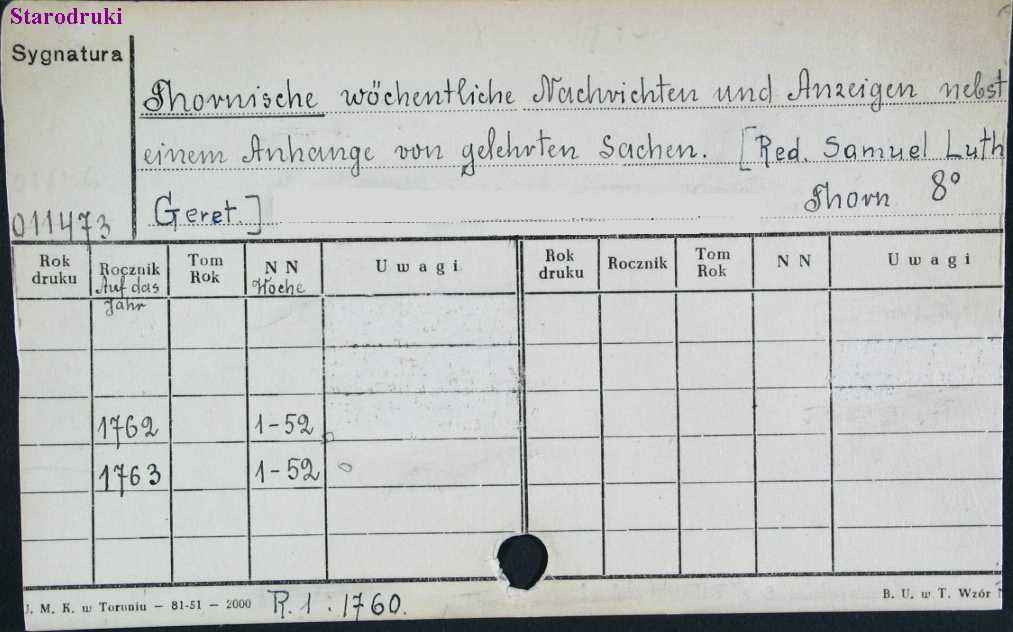 Starodruki
Sygnatura
Thornische wöchentliche Nachrichten und Anzeigen nebst
einem Anhange von gelehrten Sachen. [Red. Samuel Luth
Geret.] Thorn 8°
011473
Rok druku Rocznik Tom Rok N N Uwagi Rok druku Rocznik Tom Rok N N Uwagi
Auf das Jahr Woche
1762 1-52
1763 1-52
J. M. K. w Toruniu — 81-51 — 2000 R.1.1760. B. U. w T. Wzór